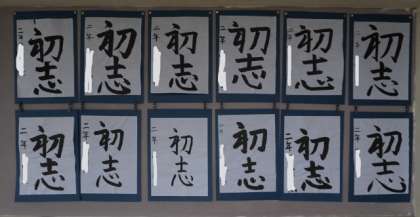 初志
二年
初志
二年
初志
二年
初志
二年
初志
二年
初志
二年
初志
二年
初志
二年
初志
二年
初志
二年
初志
二年
初志
二年